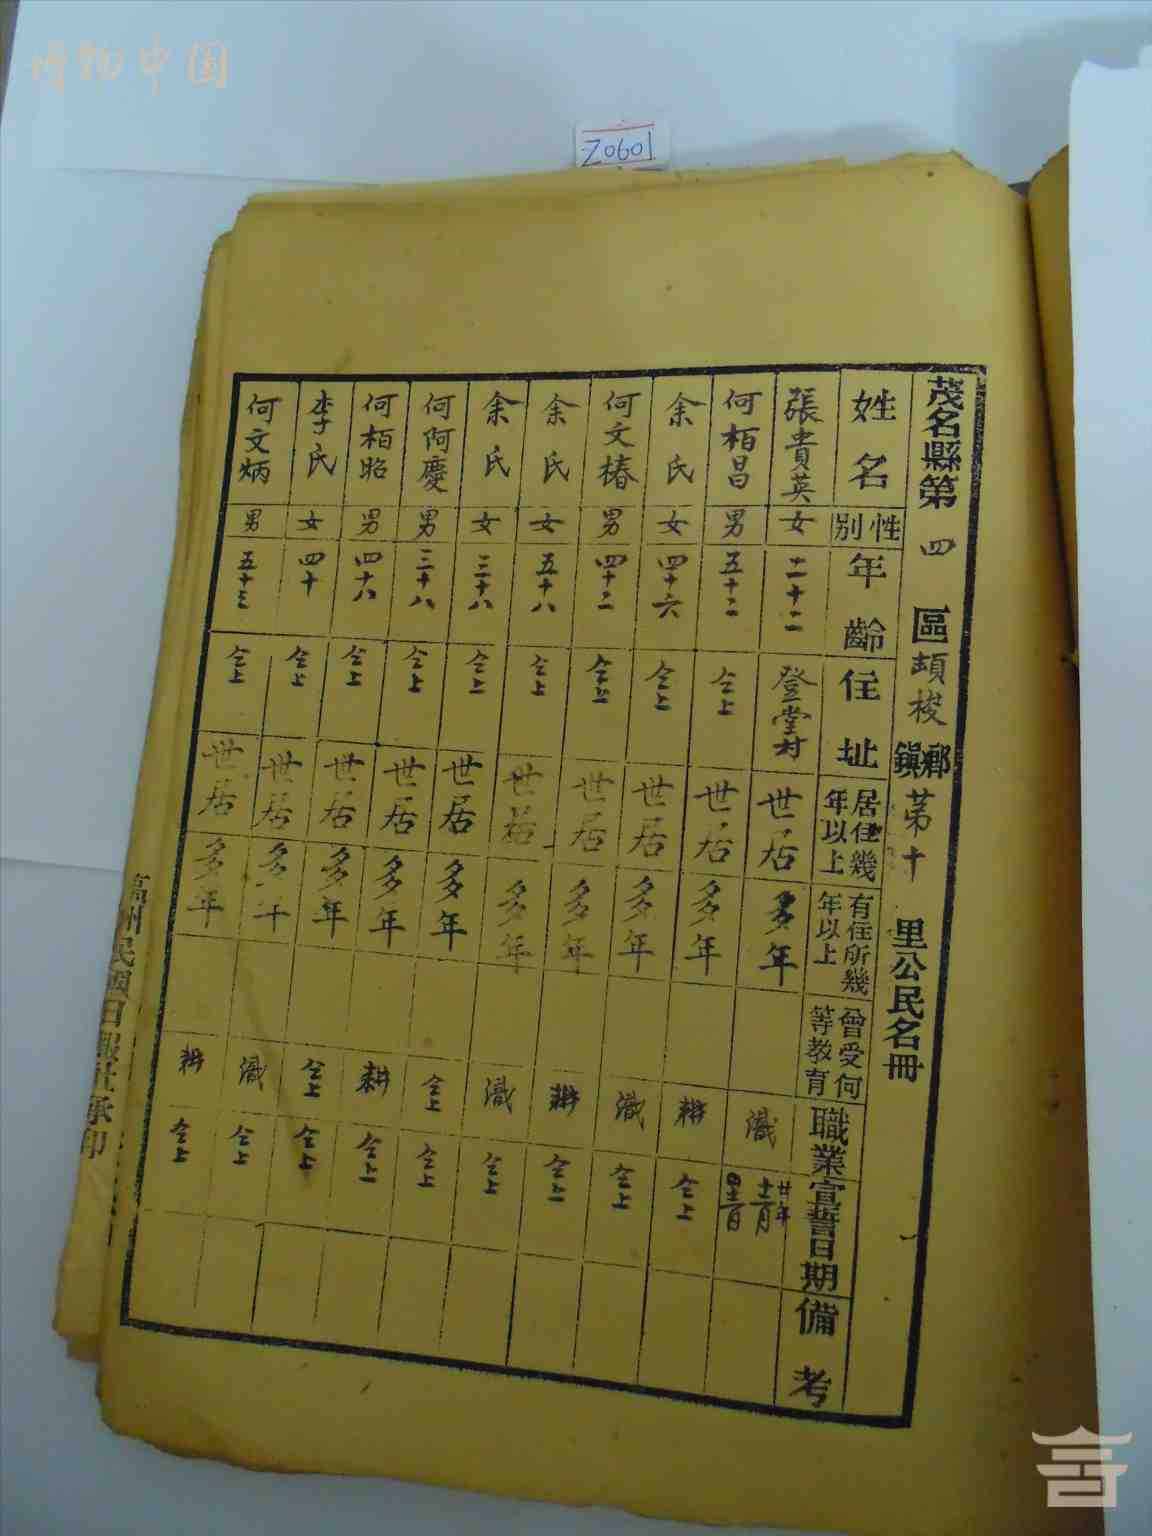 博物中国
Z0601
茂名縣第四區頡梭鄉鎮第十里公民名冊
姓名 性別 年齡 住址 居住幾年以上 有住所幾年以上 曾受何等教育 職業 宣誓日期 備考
張貴英 女 二十二 登堂村 世居 多年 織 廿年十二月四日
何栢昌 男 五十二 仝上 世居 多年 耕 仝上
余氏 女 四十六 仝上 世居 多年 織 仝上
何文椿 男 四十二 仝上 世居 多年 耕 仝上
余氏 女 五十八 仝上 世居 多年 織 仝上
余氏 女 三十八 仝上 世居 多年 仝上 仝上
何阿慶 男 三十八 仝上 世居 多年 耕 仝上
何栢昭 男 四十八 仝上 世居 多年 仝上 仝上
李氏 女 四十 仝上 世居 多年 織 仝上
何文炳 男 五十三 仝上 世居 多年 耕 仝上
高州民國日報社承印